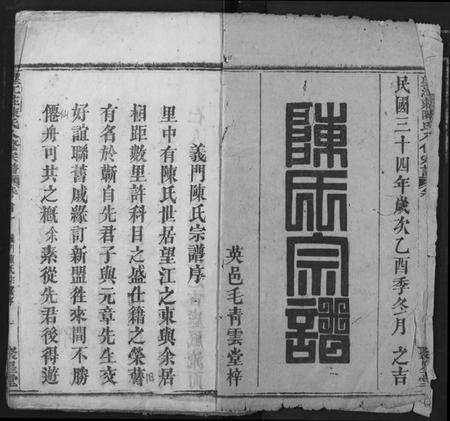 民國三十四年歲次乙酉季冬月 之吉
陳氏宗譜
英邑毛青雲堂梓
義門陳氏宗譜序
里中有陳氏世居望江之東與余居
相距數里許科目之盛仕籍之榮嘗
有名於蘄自先君子與元章先生交
好誼聯舊戚緣訂新盟往來間不勝
僊舟可共之概余素從先君後得遊
聚星堂